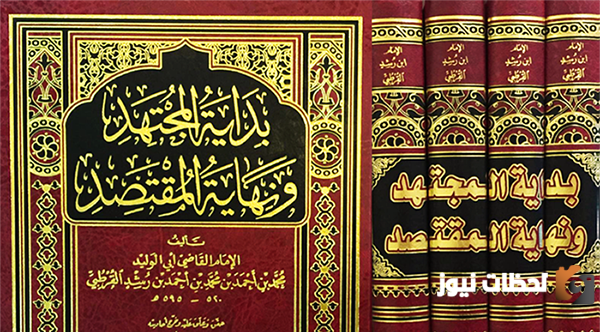 بداية المجتهد
ونهاية المقتصد
تأليف
الإمام القاضي أبي الوليد
محمد بن أحمد بن محمد بن أحمد بن رشد القرطبي
٥٢٠ - ٥٩٥ هـ
الإمام
ابن رشد
القرطبي
الإمام
ابن رشد
القرطبي
الإمام
ابن رشد
القرطبي
الإمام
ابن رشد
القرطبي
بداية المجتهد
ونهاية المقتصد
لحظات نيوز